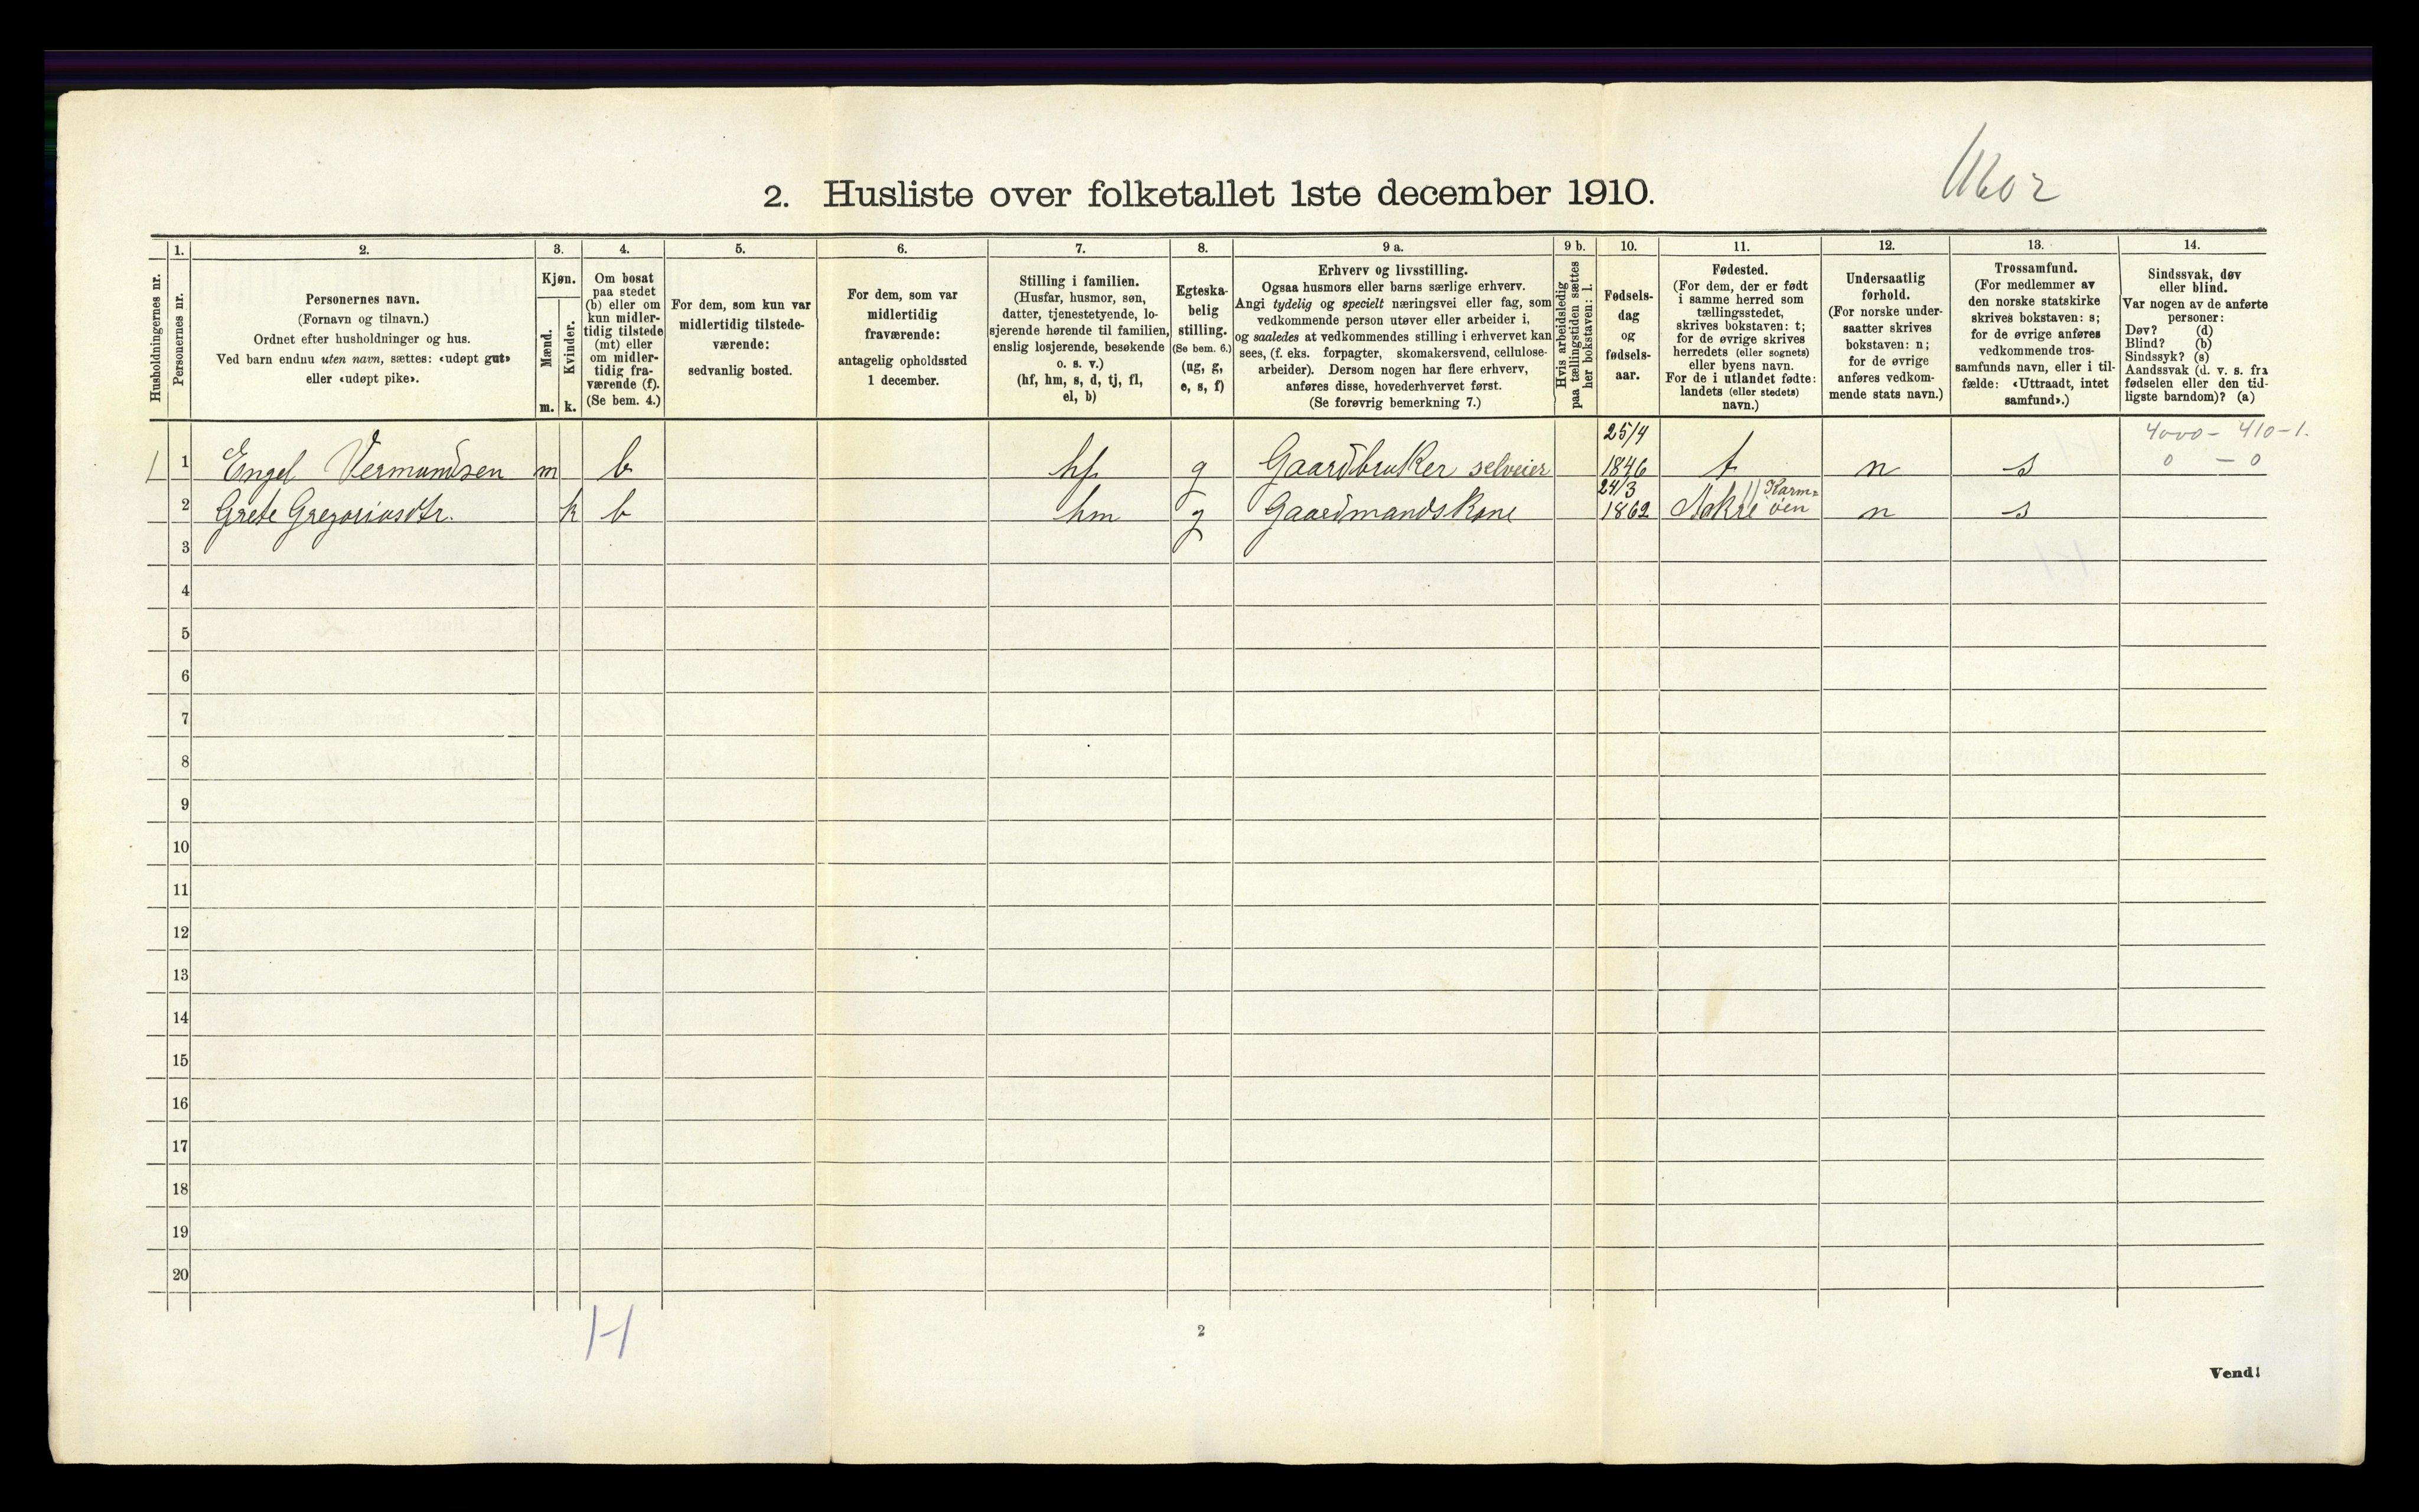 2. Husliste over folketallet 1ste december 1910.
Husholdningernes nr.
1.
Personernes nr.
2.
Personernes navn.
(Fornavn og tilnavn.)
Ordnet efter husholdninger og hus.
Ved barn endnu uten navn, sættes: «udøpt gut»
eller «udøpt pike».
3.
Kjøn.
Mænd.
Kvinder.
m. k.
4.
Om bosat
paa stedet
(b) eller om
kun midler-
tidig tilstede
(mt) eller
om midler-
tidig fra-
værende (f).
(Se bem. 4.)
5.
For dem, som kun var
midlertidig tilstede-
værende:
sedvanlig bosted.
6.
For dem, som var
midlertidig
fraværende:
antagelig opholdssted
1 december.
7.
Stilling i familien.
(Husfar, husmor, søn,
datter, tjenestetyende, lo-
sjerende hørende til familien,
enslig losjerende, besøkende
o. s. v.)
(hf, hm, s, d, tj, fl,
el, b)
8.
Egteska-
belig
stilling.
(Se bem. 6.)
(ug, g,
e, s, f)
9 a.
Erhverv og livsstilling.
Ogsaa husmors eller barns særlige erhverv.
Angi tydelig og specielt næringsvei eller fag, som
vedkommende person utøver eller arbeider i,
og saaledes at vedkommendes stilling i erhvervet kan
sees, (f. eks. forpagter, skomakersvend, cellulose-
arbeider). Dersom nogen har flere erhverv,
anføres disse, hovederhvervet først.
(Se forøvrig bemerkning 7.)
9 b.
Hvis arbeidsledig
paa tællingstiden sættes
her bokstaven: l.
10.
Fødsels-
dag
og
fødsels-
aar.
11.
Fødested.
(For dem, der er født
i samme herred som
tællingsstedet,
skrives bokstaven: t;
for de øvrige skrives
herredets (eller sognets)
eller byens navn.
For de i utlandet fødte:
landets (eller stedets)
navn.)
12.
Undersaatlig
forhold.
(For norske under-
saatter skrives
bokstaven: n;
for de øvrige
anføres vedkom-
mende stats navn.)
13.
Trossamfund.
(For medlemmer av
den norske statskirke
skrives bokstaven: s;
for de øvrige anføres
vedkommende tros-
samfunds navn, eller i til-
fælde: «Uttraadt, intet
samfund».)
14.
Sindssvak, døv
eller blind.
Var nogen av de anførte
personer:
Døv? (d)
Blind? (b)
Sindssyk? (s)
Aandssvak (d. v. s. fra
fødselen eller den tid-
ligste barndom)? (a)
25/4 4000 - 410-1.
1 1 Engel Vermundsen m b hf g Gaardbruker selveier 1846 t n s 0 - 0
24/3 Karm=
2 Grete Gregoriusdtr. k b hm g Gaardmandskone 1862 Aakre øen n s
3
4
5
6
7
8
9
10
11
12
13
14
15
16
17
18
19
20
1-1
2
Vend!